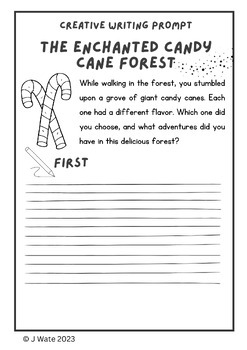 CREATIVE WRITING PROMPT
THE ENCHANTED CANDY
CANE FOREST
While walking in the forest, you stumbled
upon a grove of giant candy canes. Each
one had a different flavor. Which one did
you choose, and what adventures did you
have in this delicious forest?
FIRST
© J Wate 2023